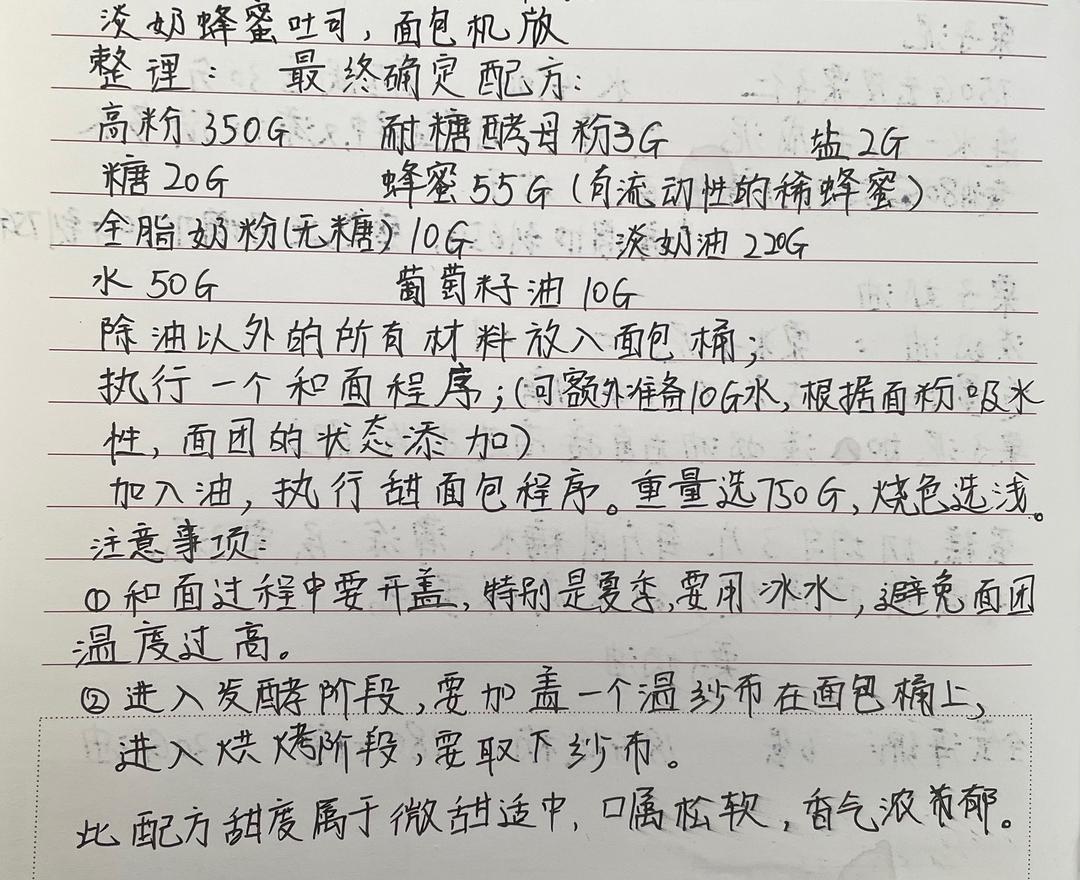 淡奶蜂蜜吐司，面包机版
整理： 最终确定配方：
高粉350G 耐糖酵母粉3G 盐2G
糖20G 蜂蜜55G（有流动性的稀蜂蜜）
全脂奶粉(无糖) 10G 淡奶油220G
水50G 葡萄籽油10G
除油以外的所有材料放入面包桶；
执行一个和面程序；(可额外准备10G水，根据面粉吸水
性，面团的状态添加)
加入油，执行甜面包程序。重量选750G，烧色选浅。
注意事项：
①和面过程中要开盖，特别是夏季，要用冰水，避免面团
温度过高。
②进入发酵阶段，要加盖一个温纱布在面包桶上，
进入烘烤阶段，要取下纱布。
此配方甜度属于微甜适中，口嘱松软，香气浓郁。